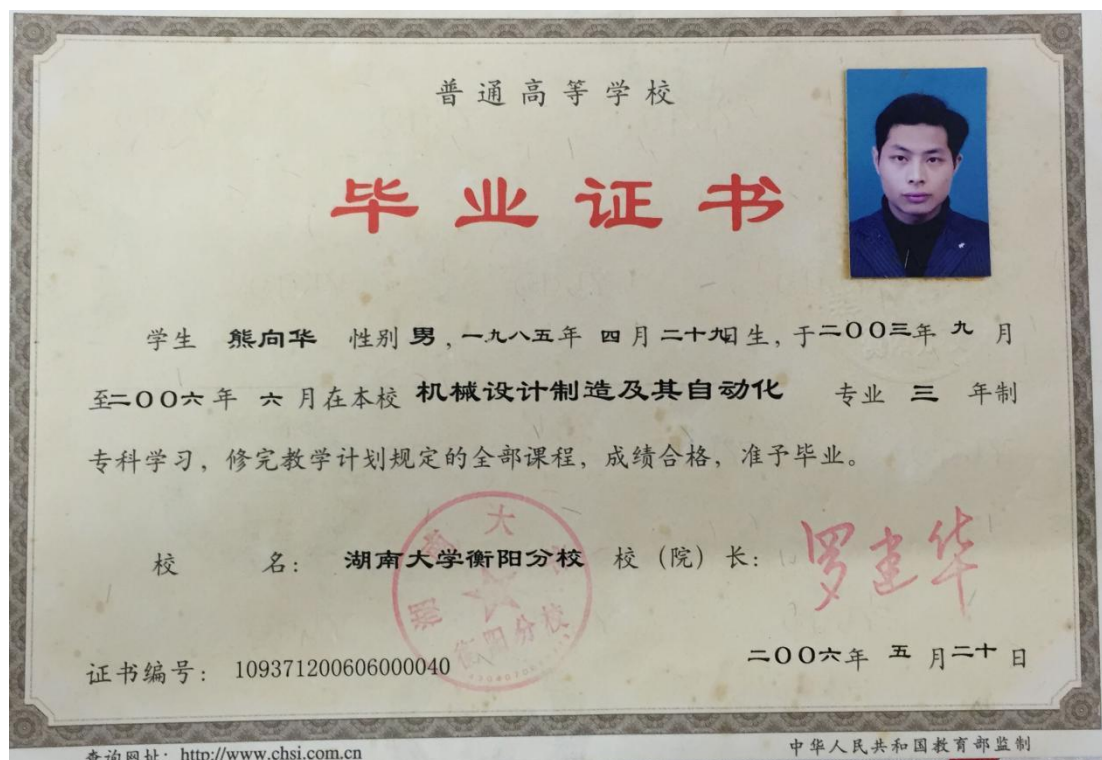 普通高等学校
毕业证书
学生 熊向华 性别 男，一九八五年 四 月 二十九日生，于二〇〇三年 九 月
至二〇〇六年 六 月在本校 机械设计制造及其自动化 专业 三 年制
专科学习，修完教学计划规定的全部课程，成绩合格，准予毕业。
校 名：湖南大学衡阳分校 校（院）长：罗建华
湖南大学
衡阳分校
证书编号：109371200606000040
二〇〇六年 五 月二十日
查询网址：http://www.chsi.com.cn
中华人民共和国教育部监制